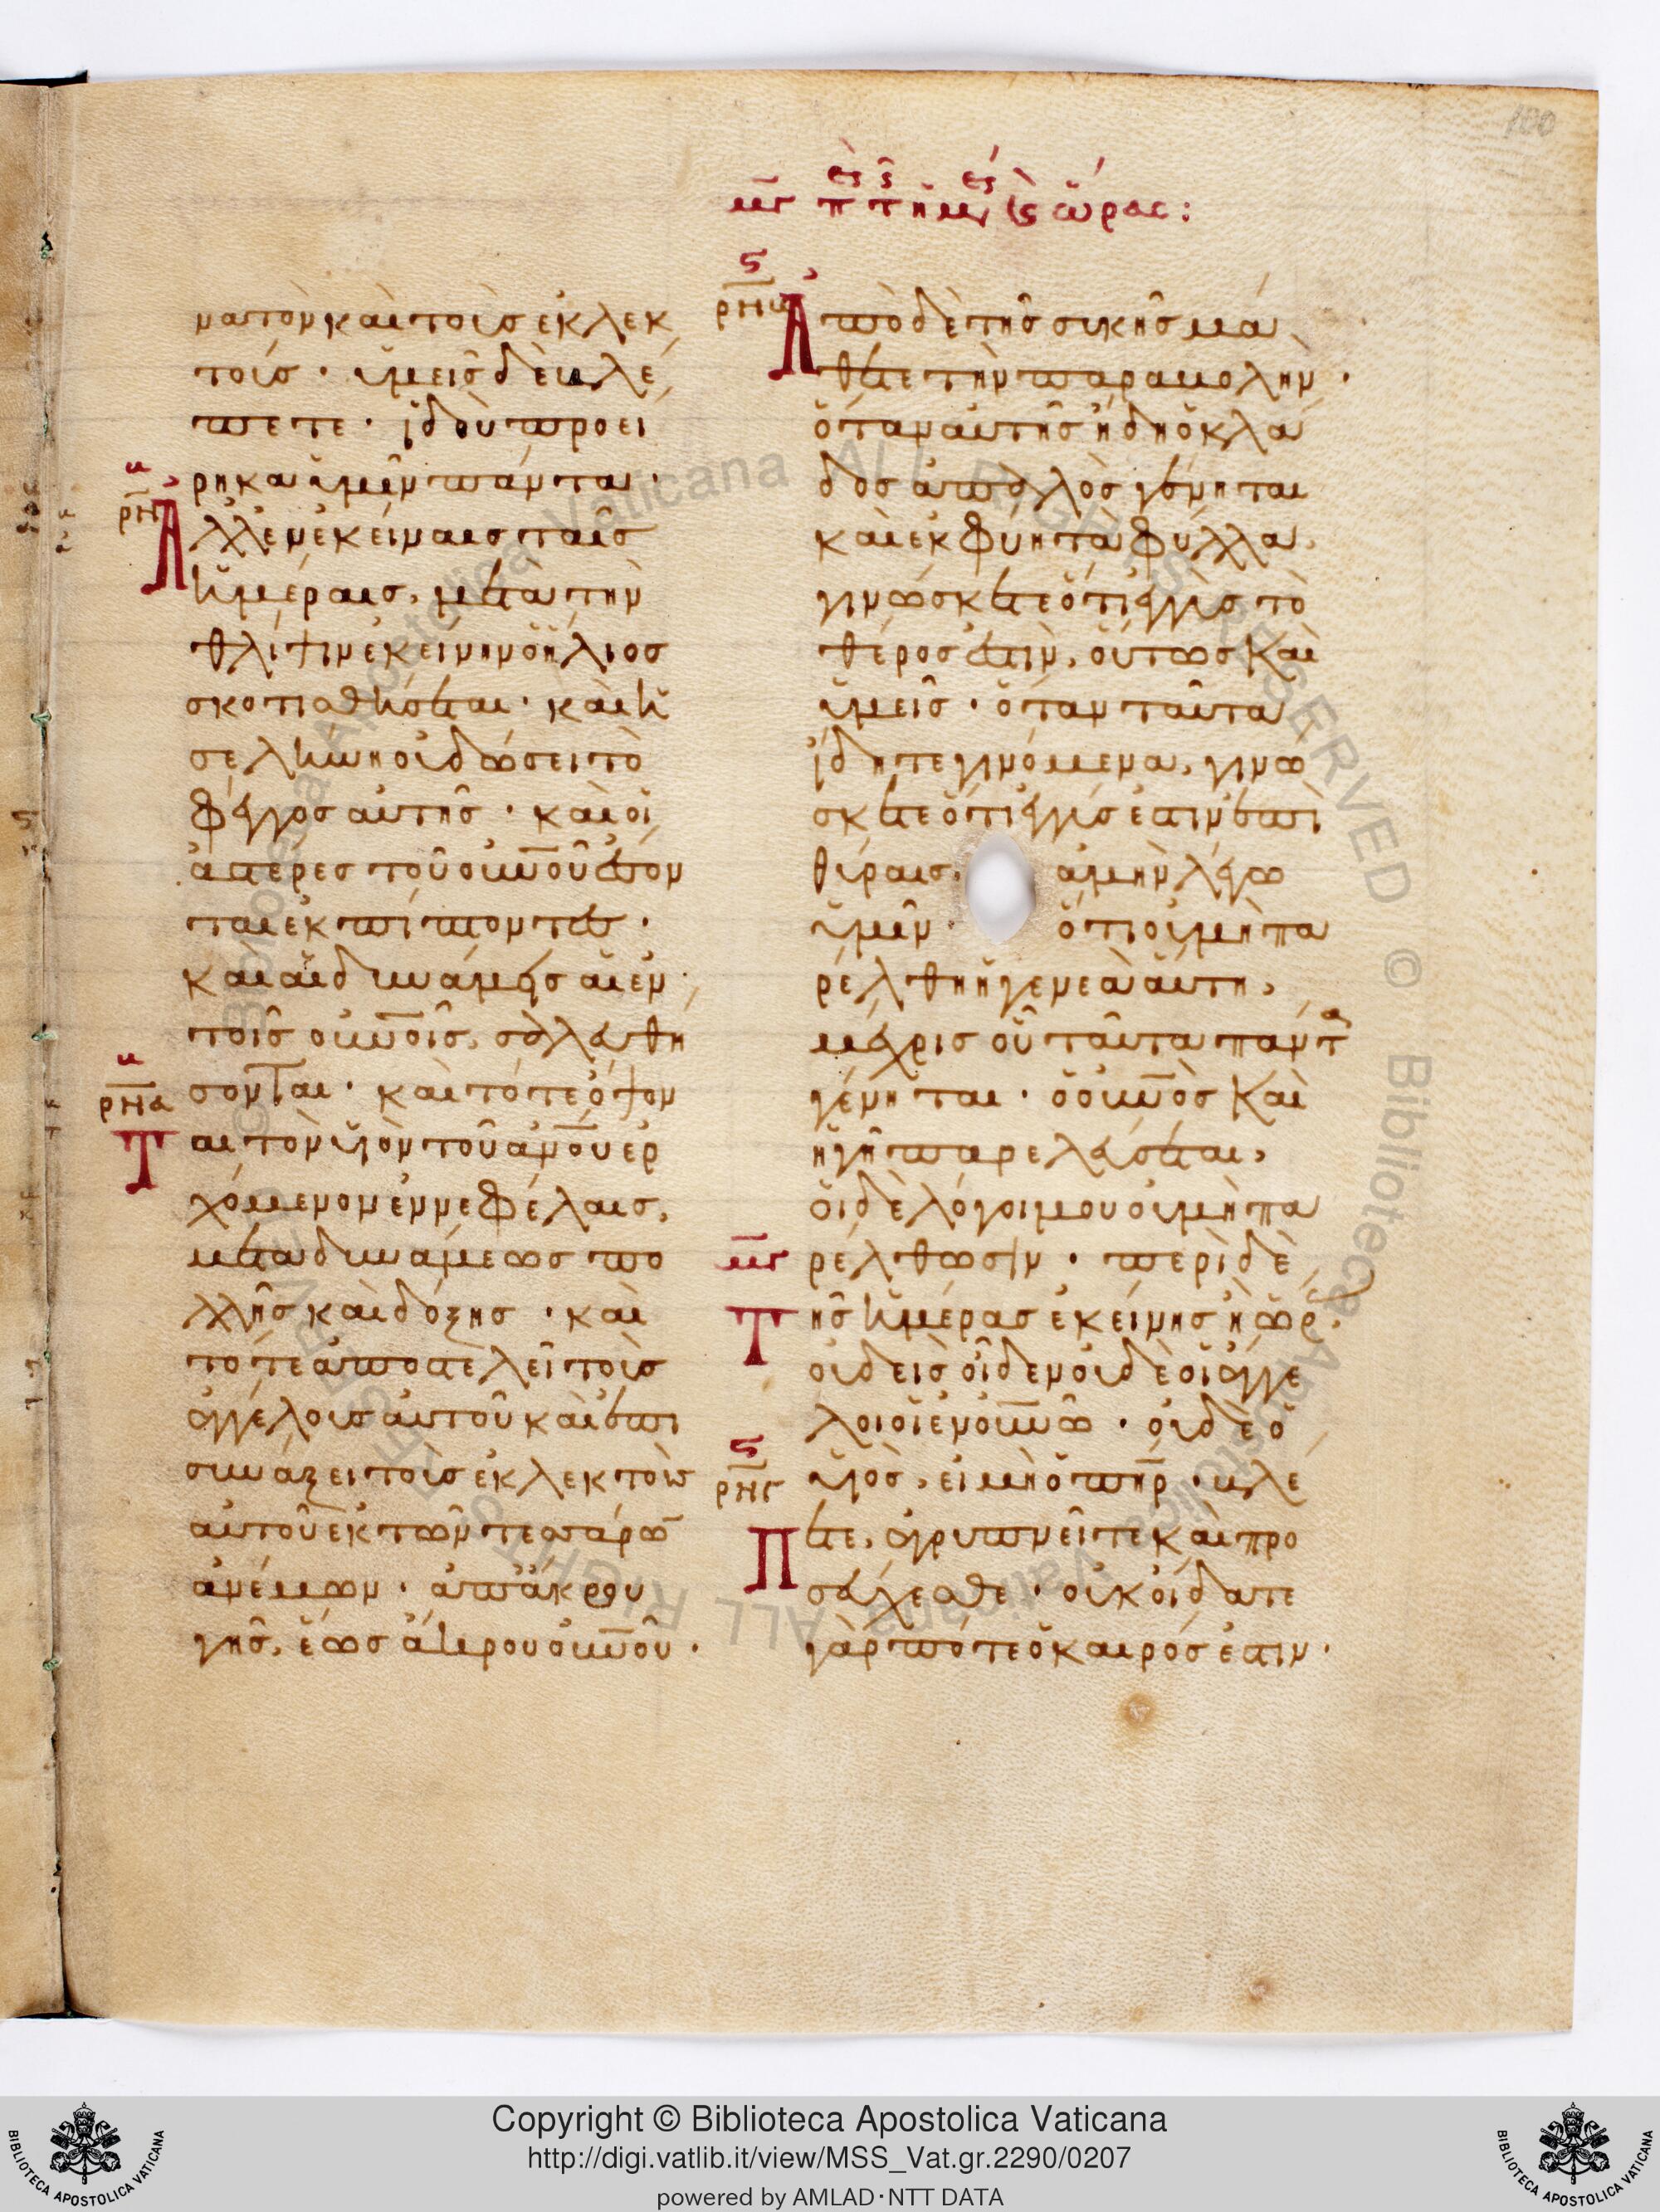 100
μγ π τ ημ ς ὥρας:
νατὸν καὶ τοὺς ἐκλεκ
τούς · ὑμεῖς δὲ βλέ
πετε · ἰδοὺ προεί
ρηκα ὑμῖν πάντα ·
β
ρη
Ἀλλ' ἐν ἐκείναις ταῖς
ἡμέραις, μετὰ τὴν
θλίψιν ἐκείνην ὁ ἥλιος
σκοτισθήσεται · καὶ ἡ
σελήνη οὐ δώσει τὸ
φέγγος αὐτῆς · καὶ οἱ
ἀστέρες τοῦ οὐνοῦ ἔσον
ται ἐκπίπτοντες ·
καὶ αἱ δυνάμεις αἱ ἐν
τοῖς οὐνοῖς, σαλευθή
σονται · καὶ τότε ὄψον
β
ρηα
Ται τὸν υἱὸν τοῦ ἀνου ἐρ
χόμενον ἐν νεφέλαις,
μετὰ δυνάμεως πο
λλῆς καὶ δόξης · καὶ
τότε ἀποστελεῖ τοὺς
ἀγγέλους αὐτοῦ καὶ ἐπι
συνάξει τοὺς ἐκλεκτοὺς
αὐτοῦ ἐκ τῶν τεσσάρω
ἀνέμων · ἀπ' ἄκρου
γῆς, ἕως ἄκρου οὐνοῦ ·
ς
ρηβ
Ἀπὸ δὲ τῆς συκῆς μά
θετε τὴν παραβολήν ·
ὅταν αὐτῆς ἤδη ὁ κλά
δος ἁπαλὸς γένηται
καὶ ἐκφύῃ τὰ φύλλα,
γινώσκετε ὅτι ἐγγὺς τὸ
θέρος ἐστίν, οὕτως καὶ
ὑμεῖς · ὅταν ταῦτα
ἴδητε γινόμενα, γινώ
σκετε ὅτι ἐγγύς ἐστιν ἐπὶ
θύραις, ἀμὴν λέγω
ὑμῖν · ὅτι οὐ μὴ πα
ρέλθη ἡ γενεὰ αὕτη,
μέχρις οὗ ταῦτα παντα
γένηται · ὁ οὐνὸς καὶ
ἡ γῆ παρελεύσεται,
οἱ δὲ λόγοι μου οὐ μὴ πα
μγ
ρέλθωσιν · περὶ δὲ
Τῆς ἡμέρας ἐκείνης ἢ ὥρ
οὐδεὶς οἶδεν οὐδὲ οἱ ἄγγε
λοι οἱ ἐν οὐνω · οὐδὲ ὁ
ς
ρηγ
υἱὸς, εἰ μὴ ὁ πηρ · βλέ
Πετε, ἀγρυπνεῖτε καὶ προ
σεύχεσθε · οὐκ οἴδατε
γὰρ πότε ὁ καιρός ἐστιν ·
Copyright © Biblioteca Apostolica Vaticana
http://digi.vatlib.it/view/MSS_Vat.gr.2290/0207
powered by AMLAD·NTT DATA
BIBLIOTECA APOSTOLICA VATICANA
BIBLIOTECA APOSTOLICA VATICANA